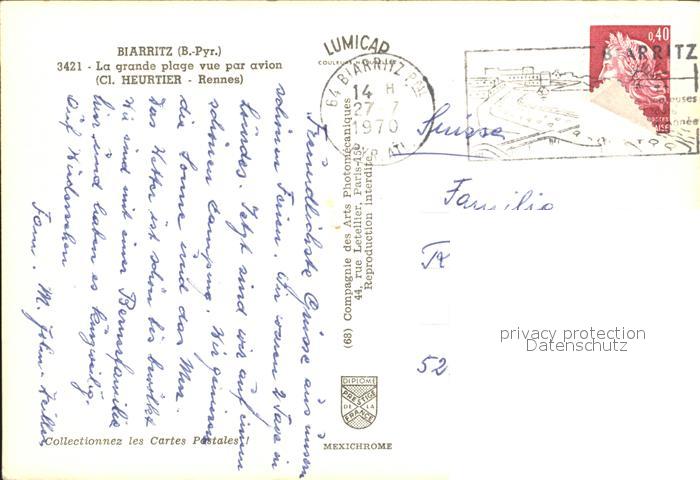 BIARRITZ (B.-Pyr.)
3421 - La grande plage vue par avion
(Cl. HEURTIER - Rennes)
LUMICAP
COULEURS NATURELLES
64 BIARRITZ PPAL
14 H
27 7
1970
PYR. ATL.
0,40
BIARRITZ
Suisse
Familie
52
Freundlichste Grüsse aus unsern
schönen Ferien. Wir waren 2 Tage in
Lourdes. Jetzt sind wir auf einem
schönen Camping. Wir geniessen
die Sonne und das Meer.
Das Wetter ist schön bis bewölkt
Wir sind mit einer Bernerfamilie
hier und haben es kurzweilig.
Auf Wiedersehen
Fam. M.
(68) Compagnie des Arts Photomécaniques
44, rue Letellier, Paris-15e
Reproduction Interdite
privacy protection
Datenschutz
DIPLOME
PRESTIGE
DE LA
FRANCE
Collectionnez les Cartes Postales
MEXICHROME